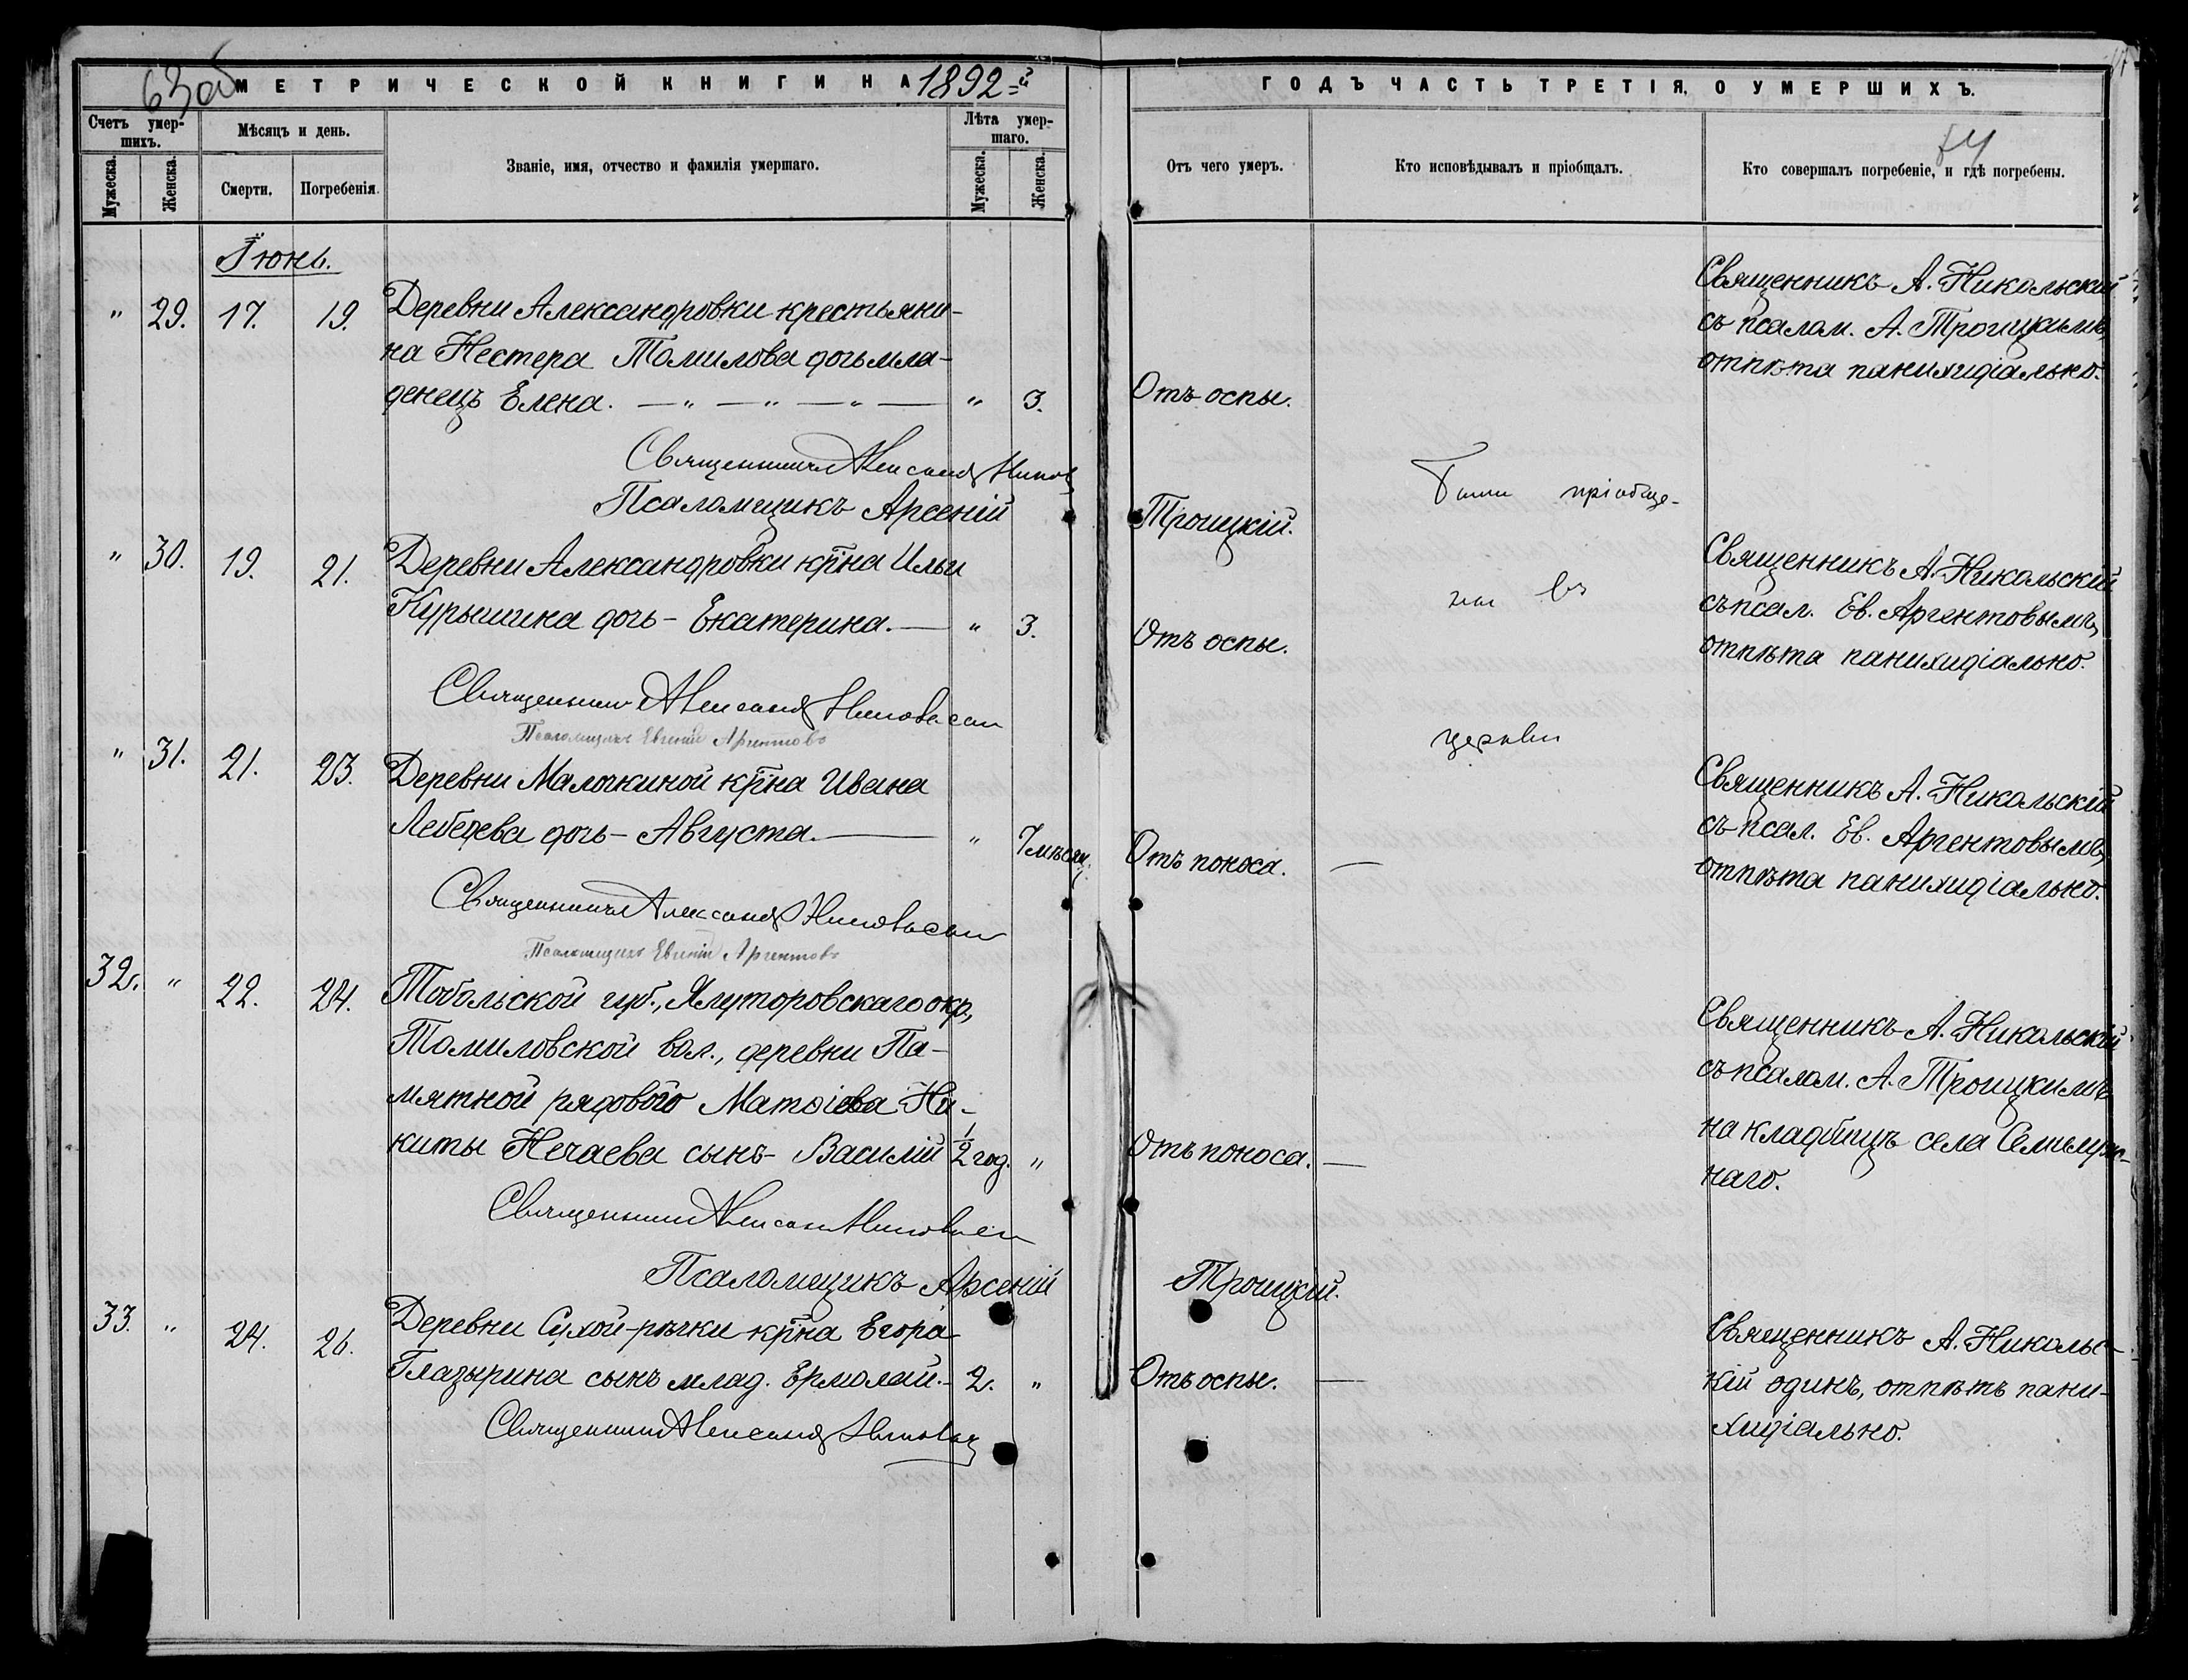 63об
МЕТРИЧЕСКОЙ КНИГИ НА 1892-й
ГОДЪ ЧАСТЬ ТРЕТІЯ, О УМЕРШИХЪ.
Счетъ умер-
шихъ.
Мужеска.
Женска.
Мѣсяцъ и день.
Смерти.
Погребенія.
Званіе, имя, отчество и фамилія умершаго.
Лѣта умер-
шаго.
Мужеска.
Женска.
Отъ чего умеръ.
Кто исповѣдывалъ и пріобщалъ.
Кто совершалъ погребеніе, и гдѣ погребены.
Іюнь.
" 29. 17. 19. Деревни Александровки крестьяни-
на Нестера Томилова дочь мла-
денецъ Елена. — " — " — " — " 3. Отъ оспы.
Священникъ А. Никольскій
съ псалом. А. Троицкимъ,
отпѣта панихидіально.
Священникъ Александ Никол
Псаломщикъ Арсеній Троицкій.
Были пріобще-
ны въ
церкви
" 30. 19. 21. Деревни Александровки кр̃на Ильи
Курышина дочь - Екатерина. — " 3. Отъ оспы.
Священникъ А. Никольскій
съ псал. Ев. Аргентовымъ,
отпѣта панихидіально.
Священникъ Александ Никольскій
Псаломщикъ Евгеній Аргентовъ
" 31. 21. 23. Деревни Малочкиной кр̃на Ивана
Лебедева дочь - Августа. — " 7 мѣсяц. Отъ поноса. —
Священникъ А. Никольскій
съ псал. Ев. Аргентовымъ,
отпѣта панихидіально.
Священникъ Александ Никольскій
Псаломщикъ Евгеній Аргентовъ
32. " 22. 24. Тобольской губ., Ялуторовскаго окр.,
Томиловской вол., деревни Па-
мятной рядового Матѳіева Ни-
киты Нечаева сынъ - Василій ½ год. " Отъ поноса. —
Священникъ А. Никольскій
съ псалом. А. Троицкимъ
на кладбищѣ села Семилуж-
наго.
Священникъ Александ Никольскій
Псаломщикъ Арсеній Троицкій.
33. " 24. 26. Деревни Сухой-рѣчки кр̃на Егора
Глазырина сынъ млад. Ермолай. - 2. " Отъ оспы. —
Священникъ А. Николь-
скій одинъ, отпѣтъ пани-
хидіально.
Священникъ Александ Никольск